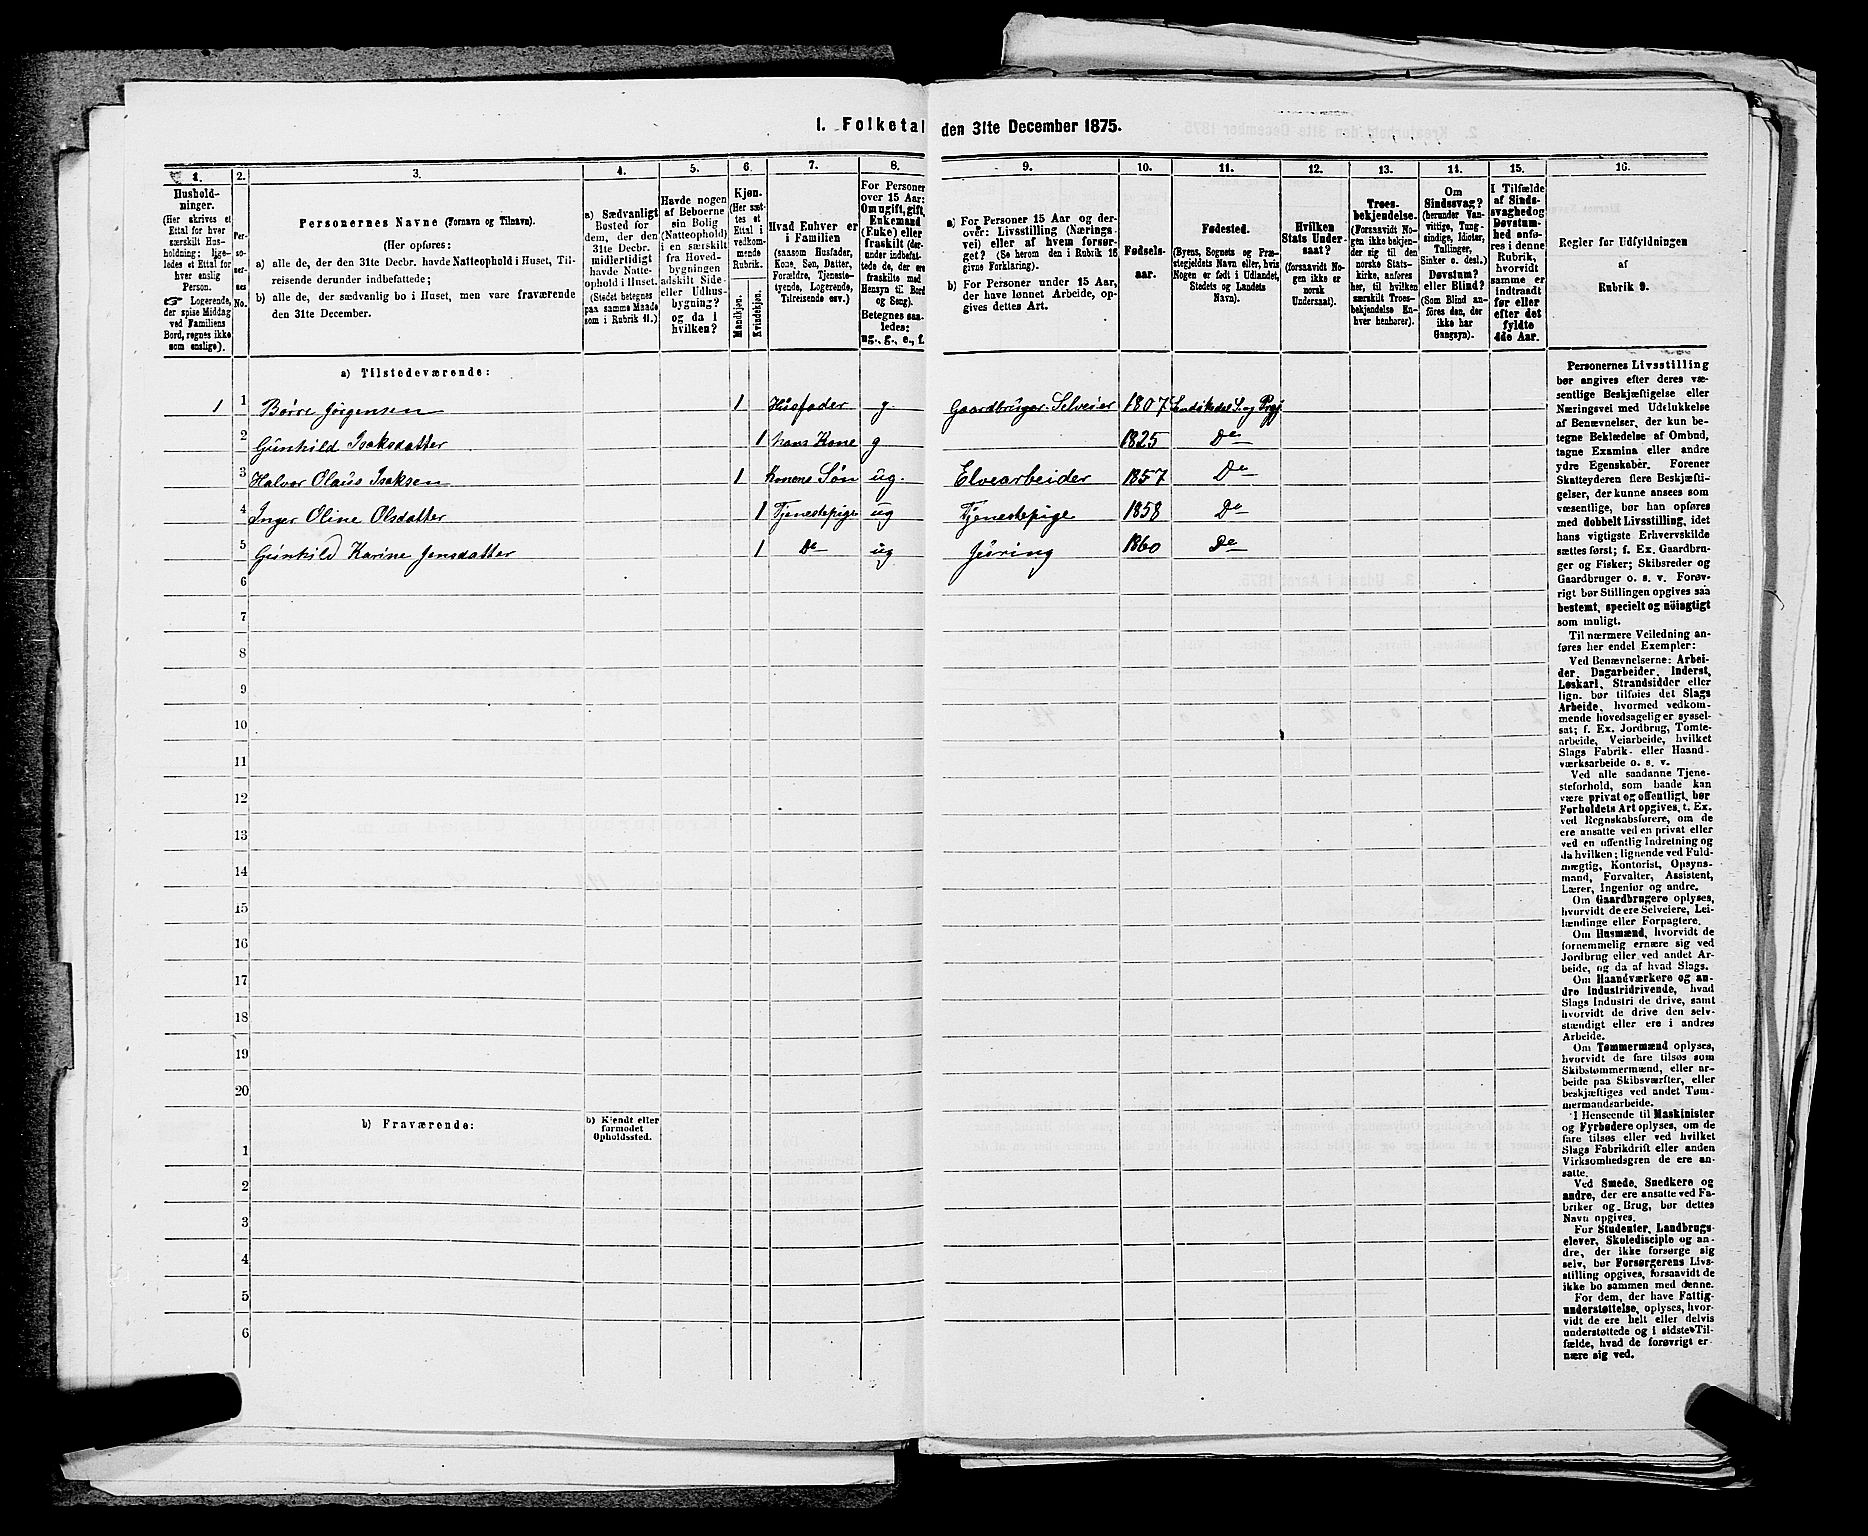 1. Folketal den 31te December 1875.
1. 2. 3. 4. 5. 6. 7. 8. 9. 10. 11. 12. 13. 14. 15. 16.
Hushold-
ninger.
(Her skrives et
Ettal for hver
særskilt Hus-
holdning; lige-
ledes et Ettal for
hver enslig
Person.
☞ Logerende,
der spise Middag
ved Familiens
Bord, regnes ikke
som enslige).
Per-
so-
ner-
nes
No.
Personernes Navne (Fornavn og Tilnavn).
(Her opføres:
a) alle de, der den 31te Decbr. havde Natteophold i Huset, Til-
reisende derunder indbefattede;
b) alle de, der sædvanlig bo i Huset, men vare fraværende
den 31te December.
a) Sædvanligt
Bosted for
dem, der den
31te Decbr.
midlertidigt
havde Natte-
ophold i Huset.
(Stedet betegnes
paa samme Maade
som i Rubrik 11.)
Havde nogen
af Beboerne
sin Bolig
(Natteophold)
i en særskilt
fra Hoved-
bygningen
adskilt Side-
eller Udhus-
bygning?
og da i
hvilken?
Kjøn.
(Her sæt-
tes et
Ettal i
vedkom-
mende
Rubrik.
Mandkjøn.
Kvindekjøn.
Hvad Enhver er
i Familien
(saasom Husfader,
Kone, Søn, Datter,
Forældre, Tjeneste-
tyende, Logerende,
Tilreisende osv.)
For Personer
over 15 Aar:
Om ugift, gift,
Enkemand
(Enke) eller
fraskilt (der-
under indbefat-
tede de, der ere
fraskilte med
Hensyn til Bord
og Seng).
Betegnes saa-
ledes:
ug., g., e., f.
a) For Personer 15 Aar og der-
over: Livsstilling (Nærings-
vei) eller af hvem forsør-
get? (Se herom den i Rubrik 16
givne Forklaring).
b) For Personer under 15 Aar,
der have lønnet Arbeide, op-
gives dettes Art.
Fødsels-
aar.
Fødested.
(Byens, Sognets og Præ-
stegjeldets Navn eller, hvis
Nogen er født i Udlandet,
Stedets og Landets
Navn).
Hvilken
Stats Under-
saat?
(forsaavidt No-
gen ikke er
norsk
Undersaat).
Troes-
bekjendelse.
(Forsaavidt No-
gen ikke bekjen-
der sig til den
norske Stats-
kirke, anføres
her, til hvilken
særskilt Troes-
bekjendelse En-
hver henhører).
Om
Sindssvag?
(herunder Van-
vittige, Tung-
sindige, Idioter,
Tullinger,
Sinker o. desl.)
Døvstum?
eller Blind?
(Som Blind an-
føres den, der
ikke har
Gangsyn).
I Tilfælde
af Sinds-
svaghed og
Døvstum-
hed anfø-
res i denne
Rubrik,
hvorvidt
samme er
indtraadt
før eller
efter det
fyldte
4de Aar.
Regler for Udfyldningen
af
Rubrik 9.
a) Tilstedeværende:
1 1 Børre Jørgensen 1 Husfader g. Gaardbruger. Selveier 1807
2 Gunhild Isaksdatter 1 hans Kone g 1825 Do
3 Halvor Olaus Isaksen 1 Konens Søn ug. Elvearbeider 1857 Do
4 Inger Oline Olsdatter 1 Tjenestepige ug Tjenestepige 1858 Do
5 Gunhild Karine Jensdatter 1 Do ug 1860 Do
6
7
8
9
10
11
12
13
14
15
16
17
18
19
20
b) Fraværende:
b) Kjendt eller
formodet
Opholdssted.
1
2
3
4
5
6
Personernes Livsstilling
bør angives efter deres væ-
sentlige Beskjæftigelse eller
Næringsvei med Udelukkelse
af Benævnelser, der kun be-
tegne Beklædelse af Ombud,
tagne Examina eller andre
ydre Egenskaber. Forener
Skatteyderen flere Beskjæfti-
gelser, der kunne ansees som
væsentlige, bør han opføres
med dobbelt Livsstilling, idet
hans vigtigste Erhvervskilde
sættes først; f. Ex. Gaardbru-
ger og Fisker; Skibsreder og
Gaardbruger o. s. v. Forøv-
rigt bør Stillingen opgives saa
bestemt, specielt og nøiagtigt
som muligt.
Til nærmere Veiledning an-
føres her endel Exempler:
Ved Benævnelserne: Arbei-
der, Dagarbeider, Inderst,
Løskarl, Strandsidder eller
lign. bør tilføies det Slags
Arbeide, hvormed vedkom-
mende hovedsagelig er syssel-
sat; f. Ex. Jordbrug, Tomte-
arbeide, Veiarbeide, hvilket
Slags Fabrik- eller Haand-
værksarbeide o. s. v.
Ved alle saadanne Tjene-
steforhold, som baade kan
være privat og offentligt, bør
Forholdets Art opgives, t. Ex.
ved Regnskabsførere, om de
ere ansatte ved en privat eller
ved en offentlig Indretning og
da hvilken; lignende ved Fuld-
mægtig, Kontorist, Opsyns-
mand, Forvalter, Assistent,
Lærer, Ingeniør og andre.
Om Gaardbrugere oplyses,
hvorvidt de ere Selveiere, Lei-
lændinge eller Forpagtere.
Om Husmænd, hvorvidt de
fornemmelig ernære sig ved
Jordbrug eller ved andet Ar-
beide, og da af hvad Slags.
Om Haandværkere og an-
dre Industridrivende, hvad
Slags Industri de drive, samt
hvorvidt de drive den selv-
stændigt eller ere i andres
Arbeide.
Om Tømmermænd oplyses,
hvorvidt de fare tilsøs som
Skibstømmermænd, eller ar-
beide paa Skibsværfter, eller
beskjæftiges ved andet Tøm-
mermandsarbeide.
I Henseende til Maskinister
og Fyrbødere oplyses, om de
fare tilsøs eller ved hvilket
Slags Fabrikdrift eller anden
Virksomhedsgren de ere an-
satte.
Ved Smede, Snedkere og
andre, der ere ansatte ved Fa-
briker og Brug, bør dettes
Navn opgives.
For Studenter, Landbrugs-
elever, Skoledisciple og an-
dre, der ikke forsørge sig
selv, bør Forsørgerens Livs-
stilling opgives, forsaavidt de
ikke bo sammen med denne.
For dem, der have Fattig-
understøttelse, oplyses, hvor-
vidt de ere helt eller delvis
understøttede og i sidste Til-
fælde, hvad de forøvrigt er-
nære sig ved.